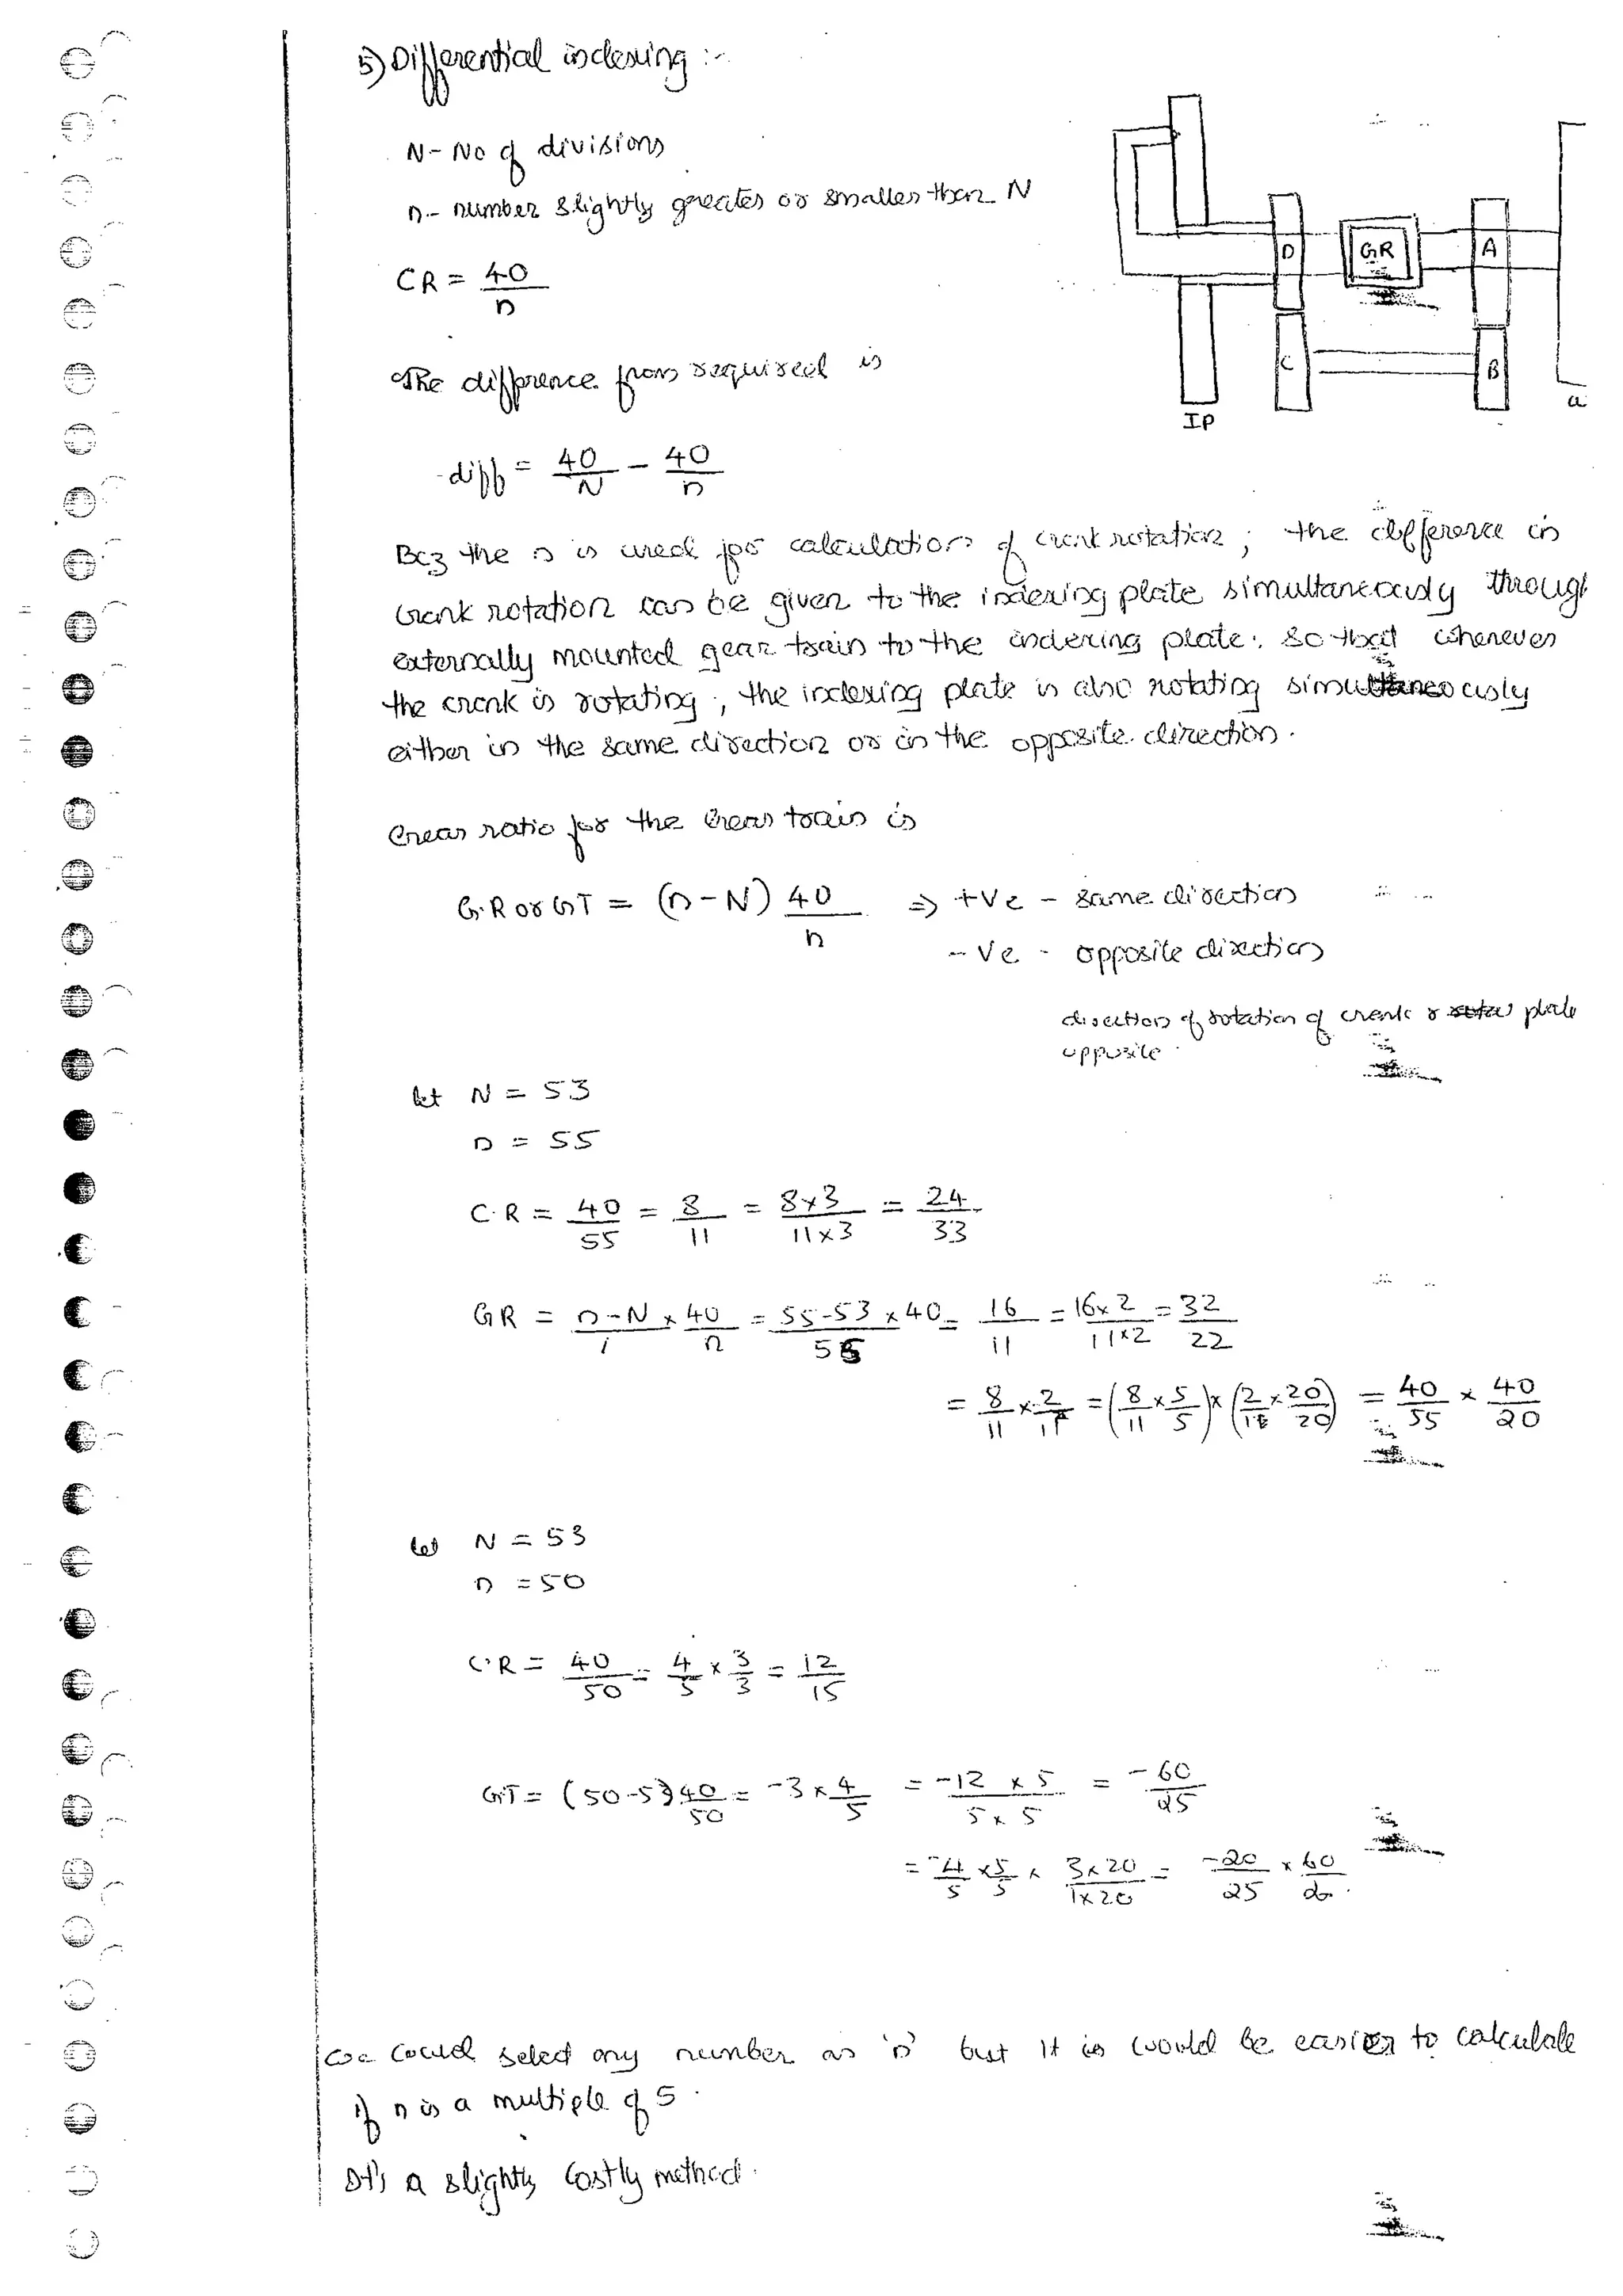 5) Differential indexing :-
N - No of divisions
n - number slightly greater or smaller than N
CR = 40/n
D
GR
A
C
B
IP
The diffprence from required is
diff = 40/N - 40/n
Bcz the n is used for calculation of crank rotation ; the difference in
crank rotation can be given to the indexing plate simultaneously through
externally mounted gear train to the indexing plate. so that whenever
the crank is rotating ; the indexing plate is also rotating simultaneously
either in the same direction or in the opposite direction.
Gear ratio for the Gear train is
G.R or GT = (n-N) 40/n ⇒ +Ve - same direction
-Ve - opposite direction
direction of rotation of crank & plate
opposite
let N = 53
n = 55
C.R = 40/55 = 8/11 = 8x3/11x3 = 24/33
GR = n-N/1 x 40/n = 55-53 x 40/55 = 16/11 = 16x2/11x2 = 32/22
= 8/11 x 2/1 = (8/11 x 5/5) x (2/1 x 20/20) = 40/55 x 40/20
let N = 53
n = 50
C.R = 40/50 = 4/5 x 3/3 = 12/15
GT = (50-53) 40/50 = -3 x 4/5 = -12 x 5/5 x 5 = -60/25
= -4/5 x 5/5 x 3x20/1x20 = -20/25 x 60/20.
we could select any number as 'n' but it is would be easier to calculate
if n is a multiple of 5.
It's a slightly costly method.